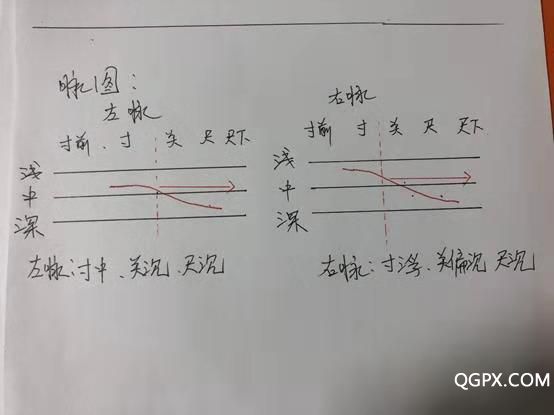 脉图：
左脉
寸前、寸 关 尺 尺下
浅
中
深
左脉：寸中、关沉、尺沉
右脉
寸前 寸 关 尺 尺下
浅
中
深
右脉：寸浮、关偏沉 尺沉
QGPX.COM